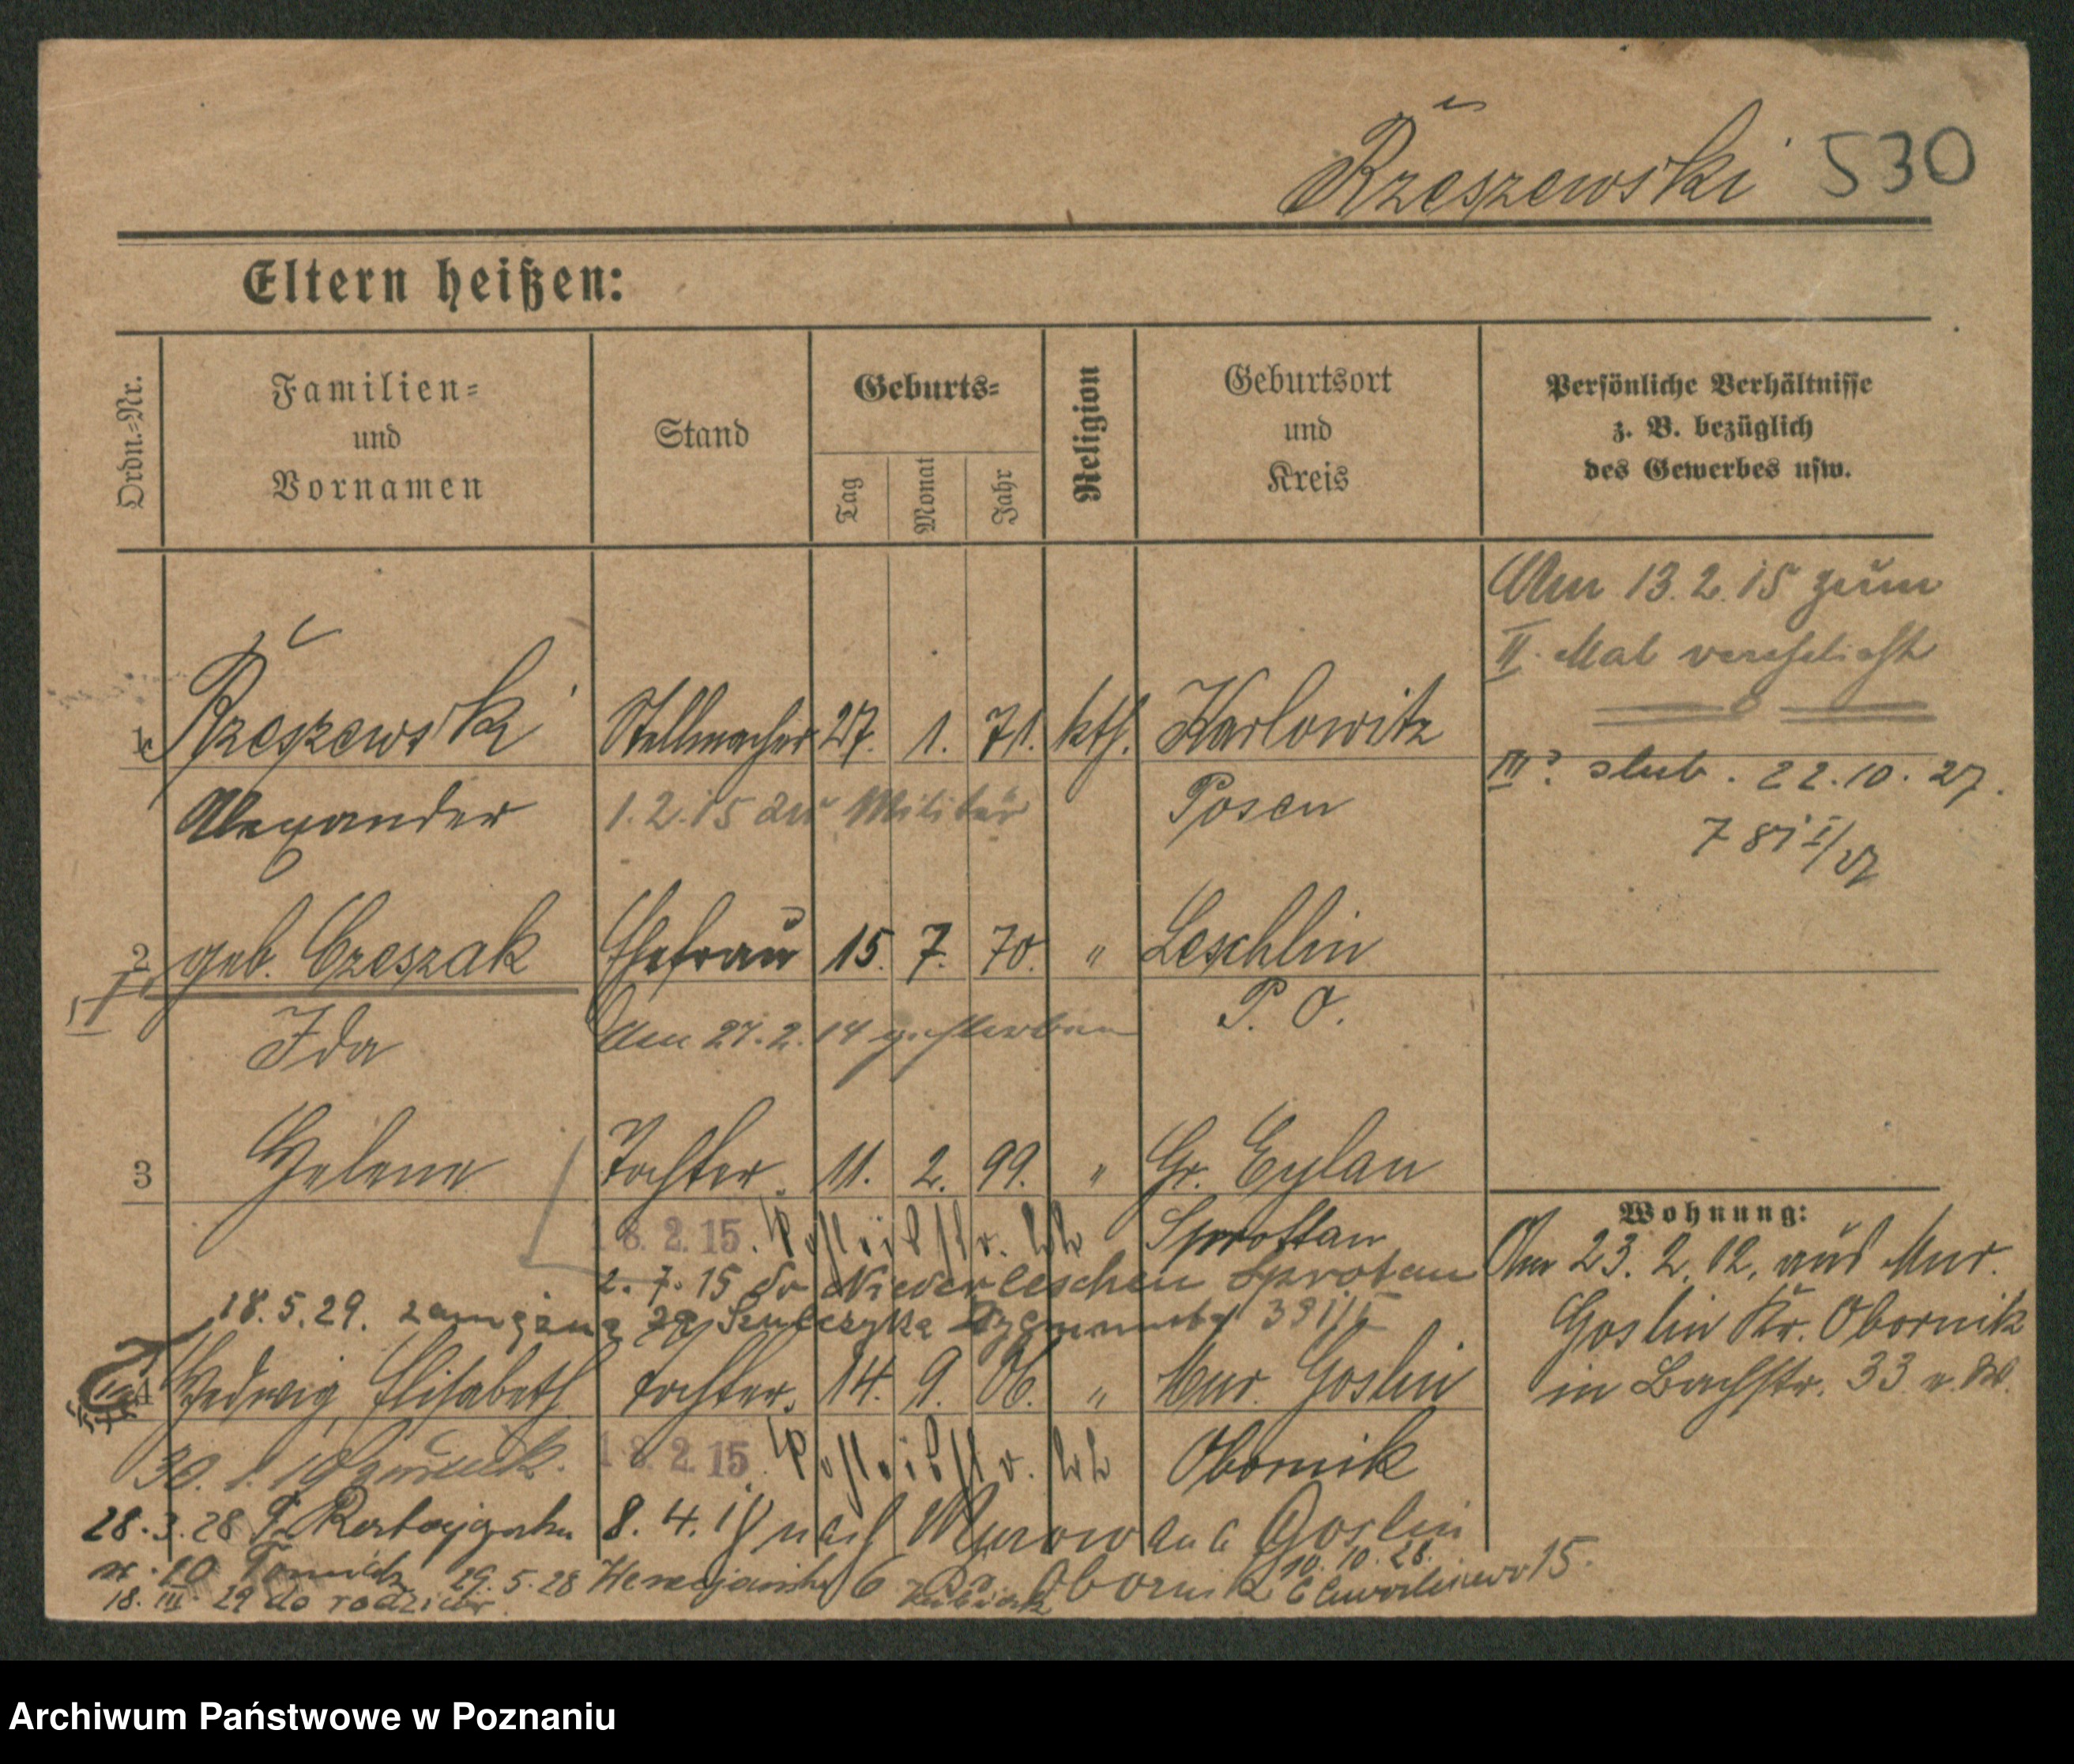 Rzeszewski 530
Eltern heißen:
Ordn.-Nr.
Familien-
und
Vornamen
Stand
Geburts-
Tag
Monat
Jahr
Religion
Geburtsort
und
Kreis
Persönliche Verhältnisse
z. B. bezüglich
des Gewerbes usw.
Am 13.2.15 zum
II. Mal verehelicht
1 Rzeszewski Stellmacher 27. 1. 71. kth. Karlowitz
III? slub. 22.10.27.
Alexander 1.2.15 zu Militär Posen
2 geb. Czeszak Ehefrau 15. 7. 70. " Leschlin
Ida Am 27.2.14 gestorben P. O.
3 Helene Tochter 11. 2. 99. " Gr. Eylau
18. 2. 15. Sprottau
2.7.15 Niederleschen Sprotau
18.5.29. zamężna za
Wohnung:
Am 23.2.12. aus Mur.
Goslin Kr. Obornik
in Bachstr. 33 
4 Hedwig Elisabeth Tochter. 14. 9. 06. " Mur. Goslin
30.1.19 zurück. 18. 2. 15 Obornik
28.3.28 8.4.19 nach Murowana Goslin
nr. 10 29.5.28 6 Obornik 10.10.28. 15.
18. III. 29 do rodziców
Archiwum Państwowe w Poznaniu